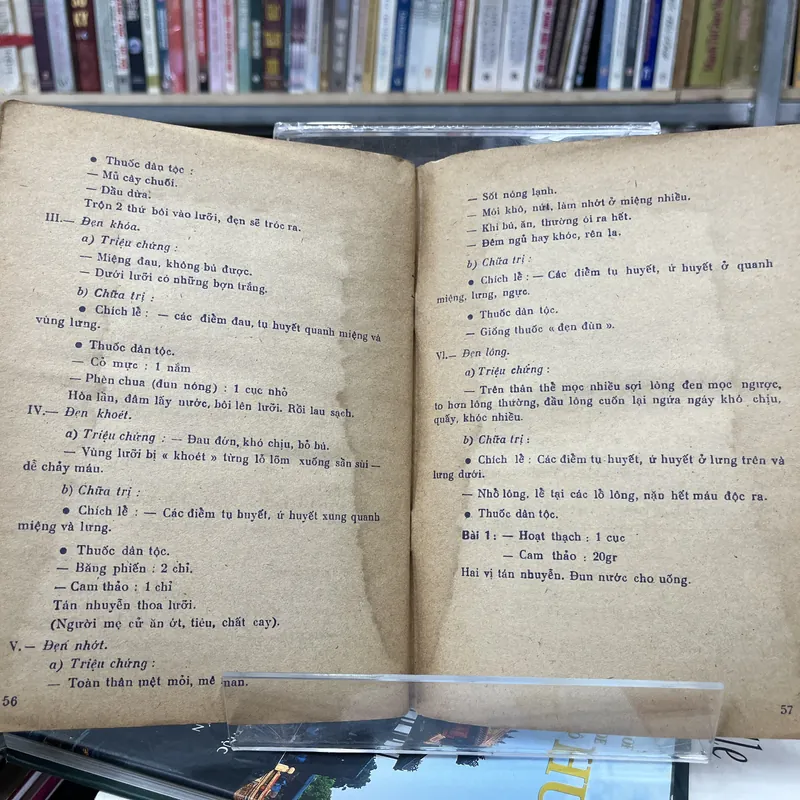 ● Thuốc dân tộc :
— Mủ cây chuối.
— Dầu dừa.
Trộn 2 thứ bôi vào lưỡi, đẹn sẽ tróc ra.
III.— Đẹn khóa.
a) Triệu chứng :
— Miệng đau, không bú được.
— Dưới lưỡi có những bợn trắng.
b) Chữa trị :
● Chích lễ : — các điểm đau, tụ huyết quanh miệng và
vùng lưng.
● Thuốc dân tộc.
— Cỏ mực : 1 nắm
— Phèn chua (đun nóng) : 1 cục nhỏ
Hòa lẫn, dâm lấy nước, bôi lên lưỡi. Rồi lau sạch.
IV.— Đẹn khoét.
a) Triệu chứng : — Đau đớn, khó chịu, bỏ bú.
— Vùng lưỡi bị « khoét » từng lỗ lõm xuống sần sùi —
dễ chảy máu.
b) Chữa trị :
● Chích lễ : — Các điểm tụ huyết, ứ huyết xung quanh
miệng và lưng.
● Thuốc dân tộc.
— Băng phiến : 2 chỉ.
— Cam thảo : 1 chỉ
Tán nhuyễn thoa lưỡi.
(Người mẹ cử ăn ớt, tiêu, chất cay).
V.— Đẹn nhớt.
a) Triệu chứng :
— Toàn thân mệt mỏi, mê man.
56
— Sốt nóng lạnh.
— Môi khô, nứt, làm nhớt ở miệng nhiều.
— Khi bú, ăn, thường ói ra hết.
— Đêm ngủ hay khóc, rên la.
b) Chữa trị :
● Chích lễ : — Các điểm tụ huyết, ứ huyết ở quanh
miệng, lưng, ngực.
● Thuốc dân tộc.
— Giống thuốc « đẹn đùn ».
VI.— Đẹn lông.
a) Triệu chứng :
— Trên thân thể mọc nhiều sợi lông đen mọc ngược,
to hơn lông thường, đầu lông cuốn lại ngứa ngáy khó chịu,
quấy, khóc nhiều.
b) Chữa trị :
● Chích lễ : Các điểm tụ huyết, ứ huyết ở lưng trên và
lưng dưới.
— Nhổ lông, lể tại các lỗ lông, nặn hết máu độc ra.
● Thuốc dân tộc.
Bài 1 : — Hoạt thạch : 1 cục
— Cam thảo : 20gr
Hai vị tán nhuyễn. Đun nước cho uống.
57